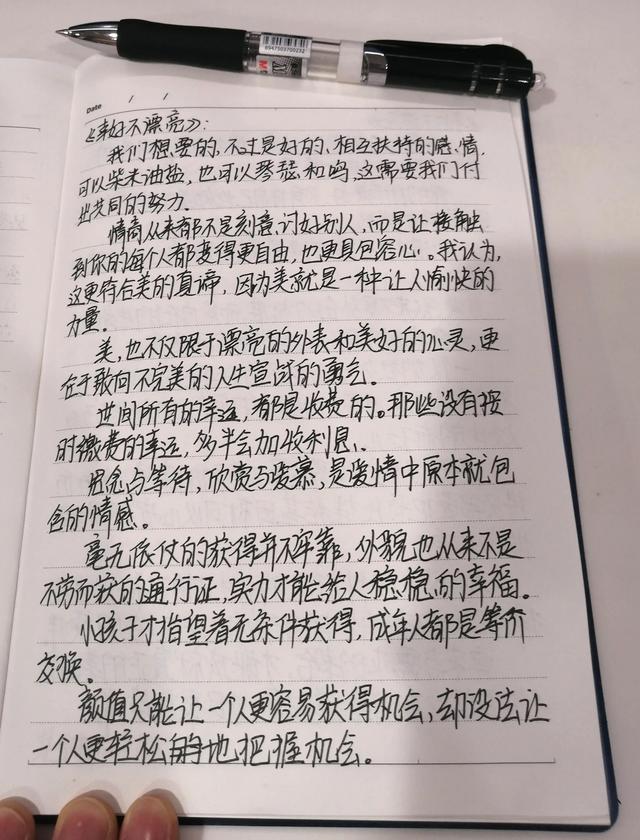 Date / /
《幸好不漂亮》:
我们想要的,不过是好的、相互扶持的感情,
可以柴米油盐,也可以琴瑟和鸣,这需要我们付
出共同的努力.
情商从来都不是刻意讨好别人,而是让接触
到你的每个人都变得更自由,也更具包容心。我认为,
这更符合美的真谛,因为美就是一种让人愉快的
力量.
美,也不仅限于漂亮的外表和美好的心灵,更
在于敢向不完美的人生宣战的勇气.
世间所有的幸运,都是收费的。那些没有按
时缴费的幸运,多半会加收利息.
思念与等待,欣赏与爱慕,是爱情中原本就包
含的情感。
毫无依仗的获得并不牢靠,外貌也从来不是
不劳而获的通行证,实力才能给人稳稳的幸福.
小孩子才指望着无条件获得,成年人都是等价
交换。
颜值只能让一个人更容易获得机会,却没法让
一个人更轻松地把握机会。
6947503700232